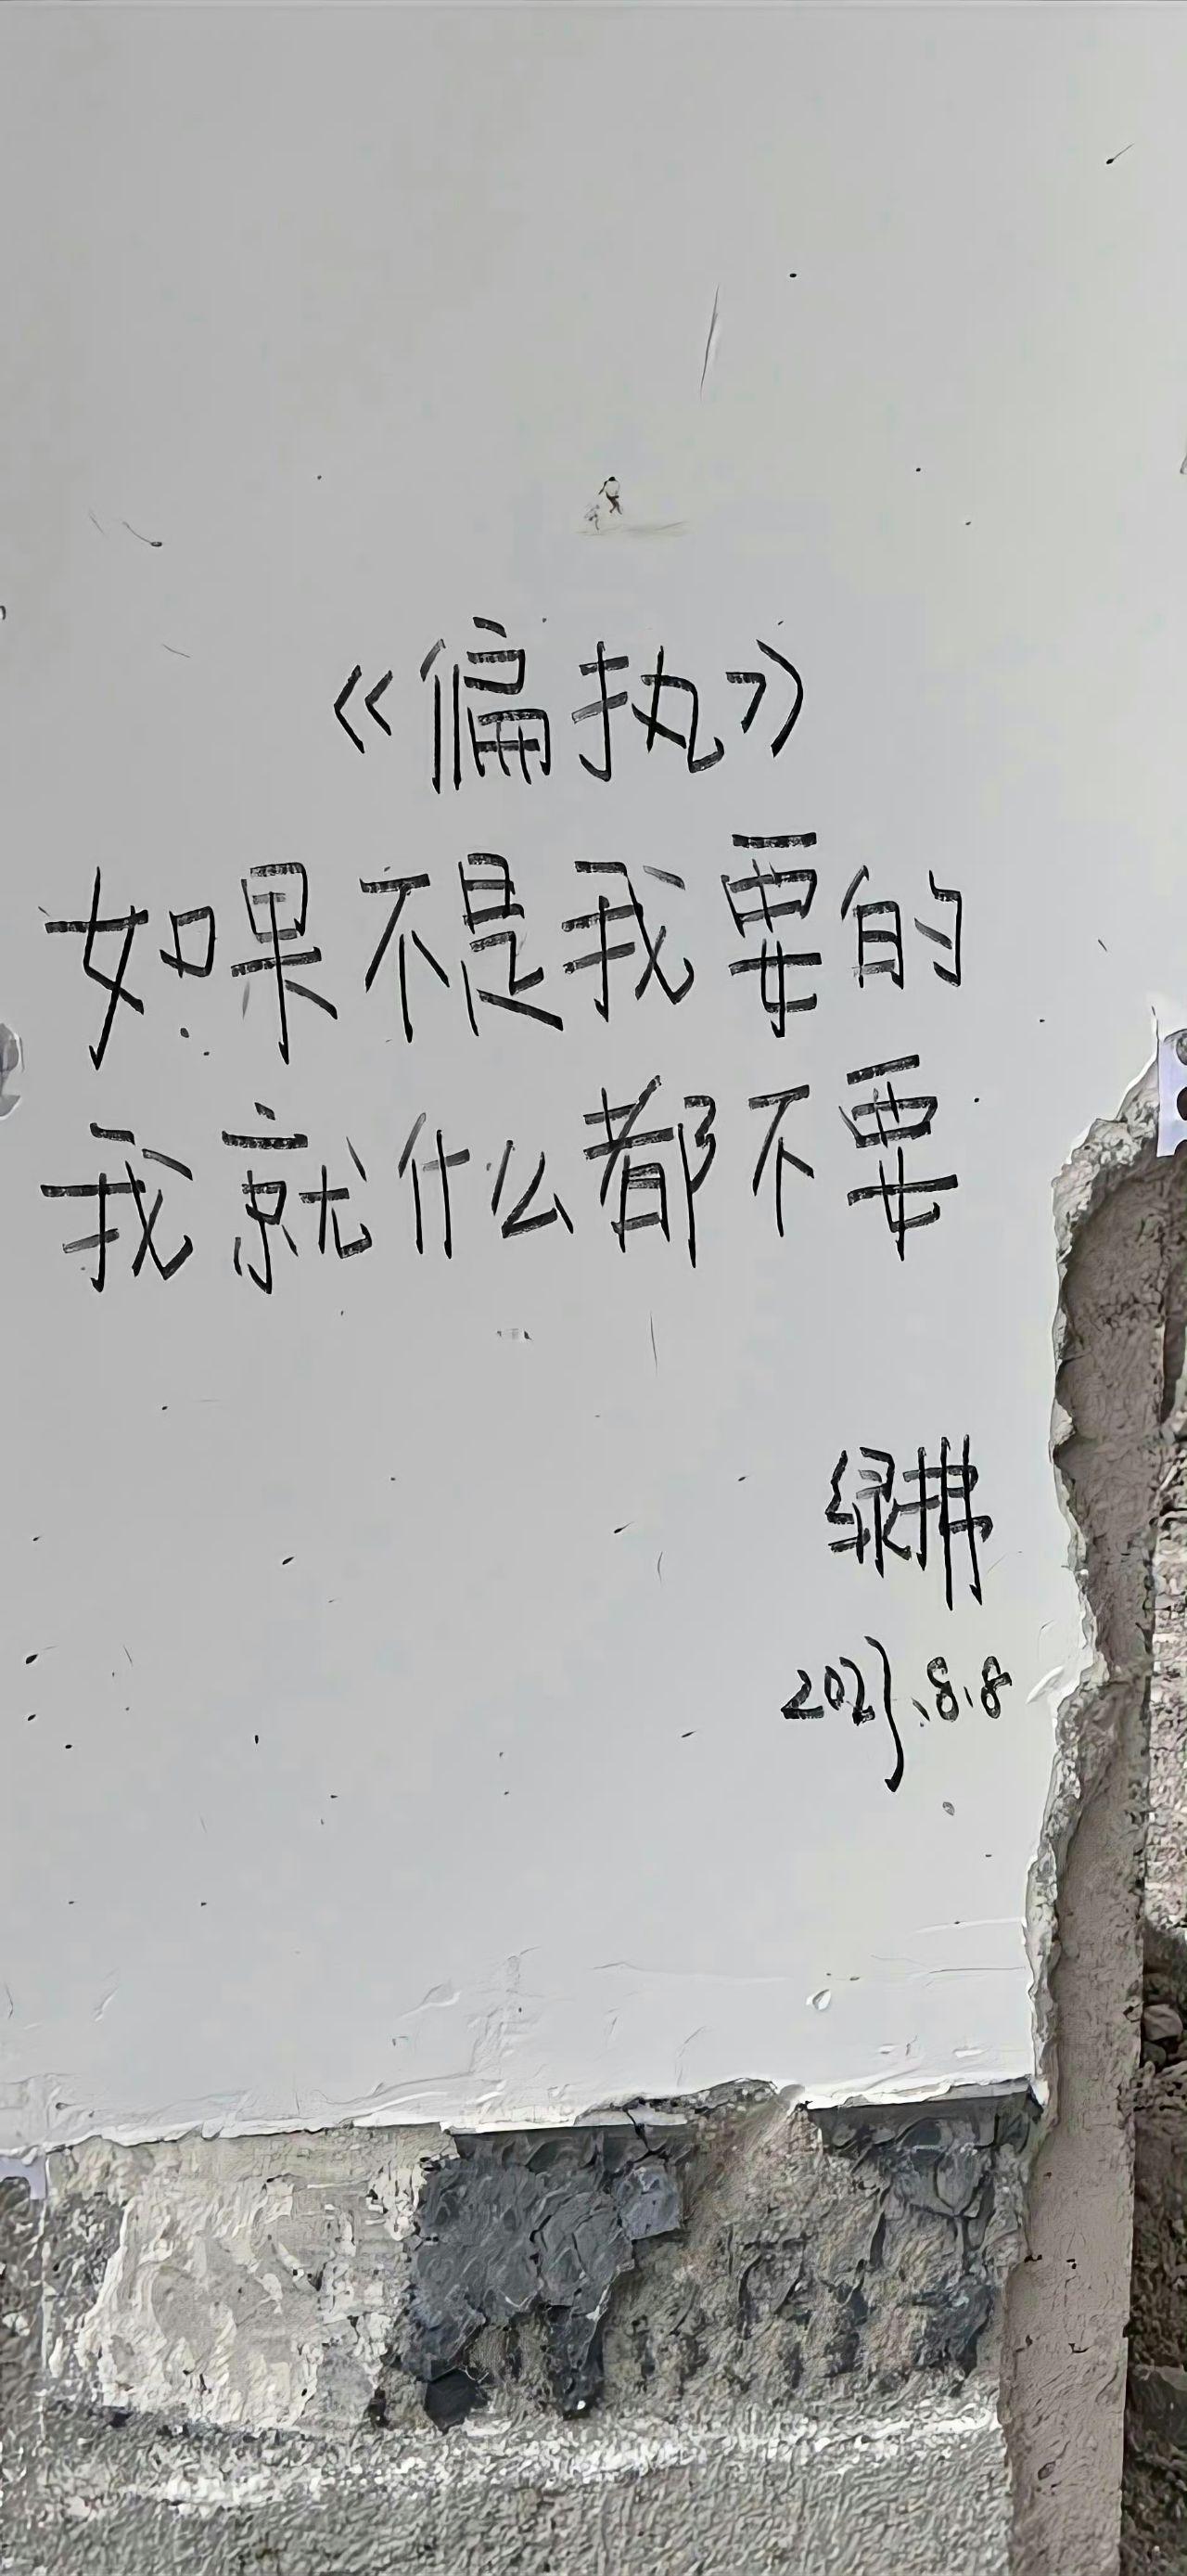 《偏执》
如果不是我要的
我就什么都不要
绿拂
2023.8.8